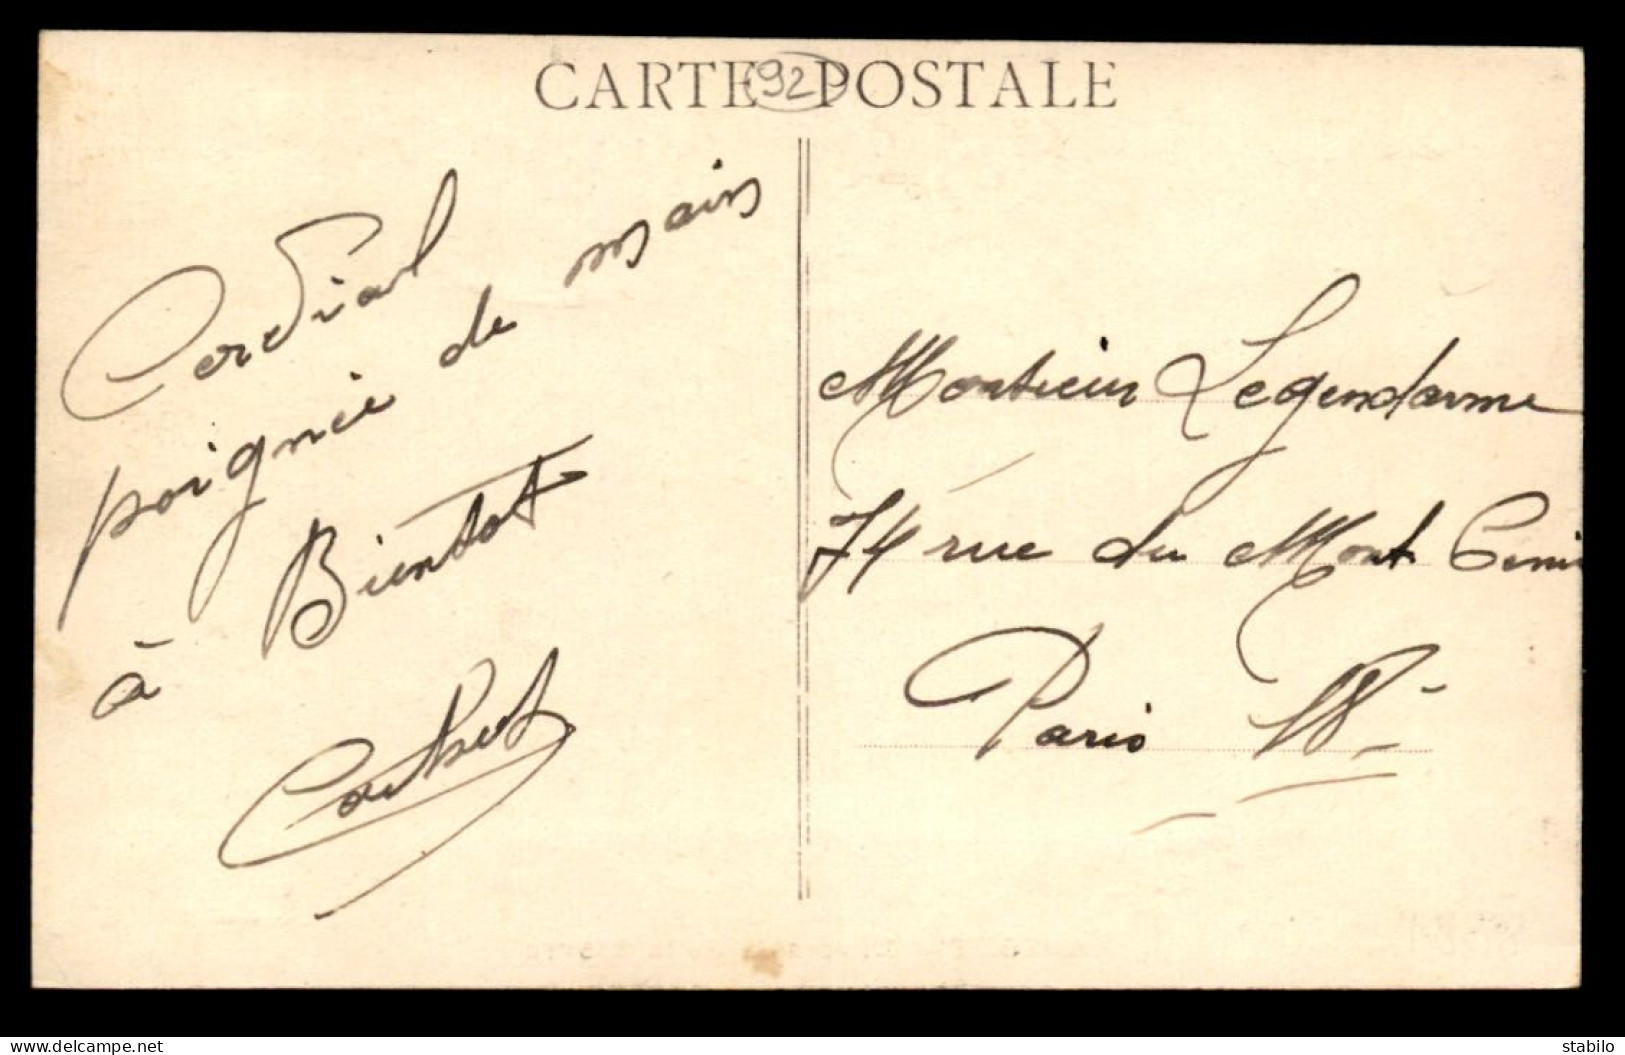 CARTE POSTALE
(92)
Cordial
poignée de mains
à Bientot
Monsieur Legendarme
74 rue du Mont Cenis
Paris 18
www.delcampe.net
stabilo